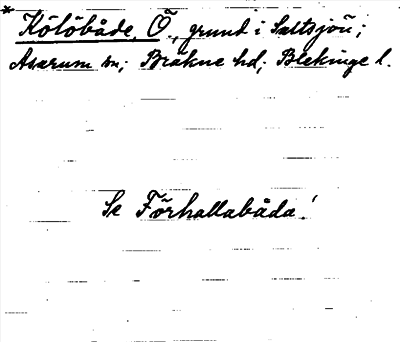 * Kölöbåde, Ö., grund i Saltsjön;
Asarum sn; Bräkne hd; Blekinge l.
Se Förhallabåda!